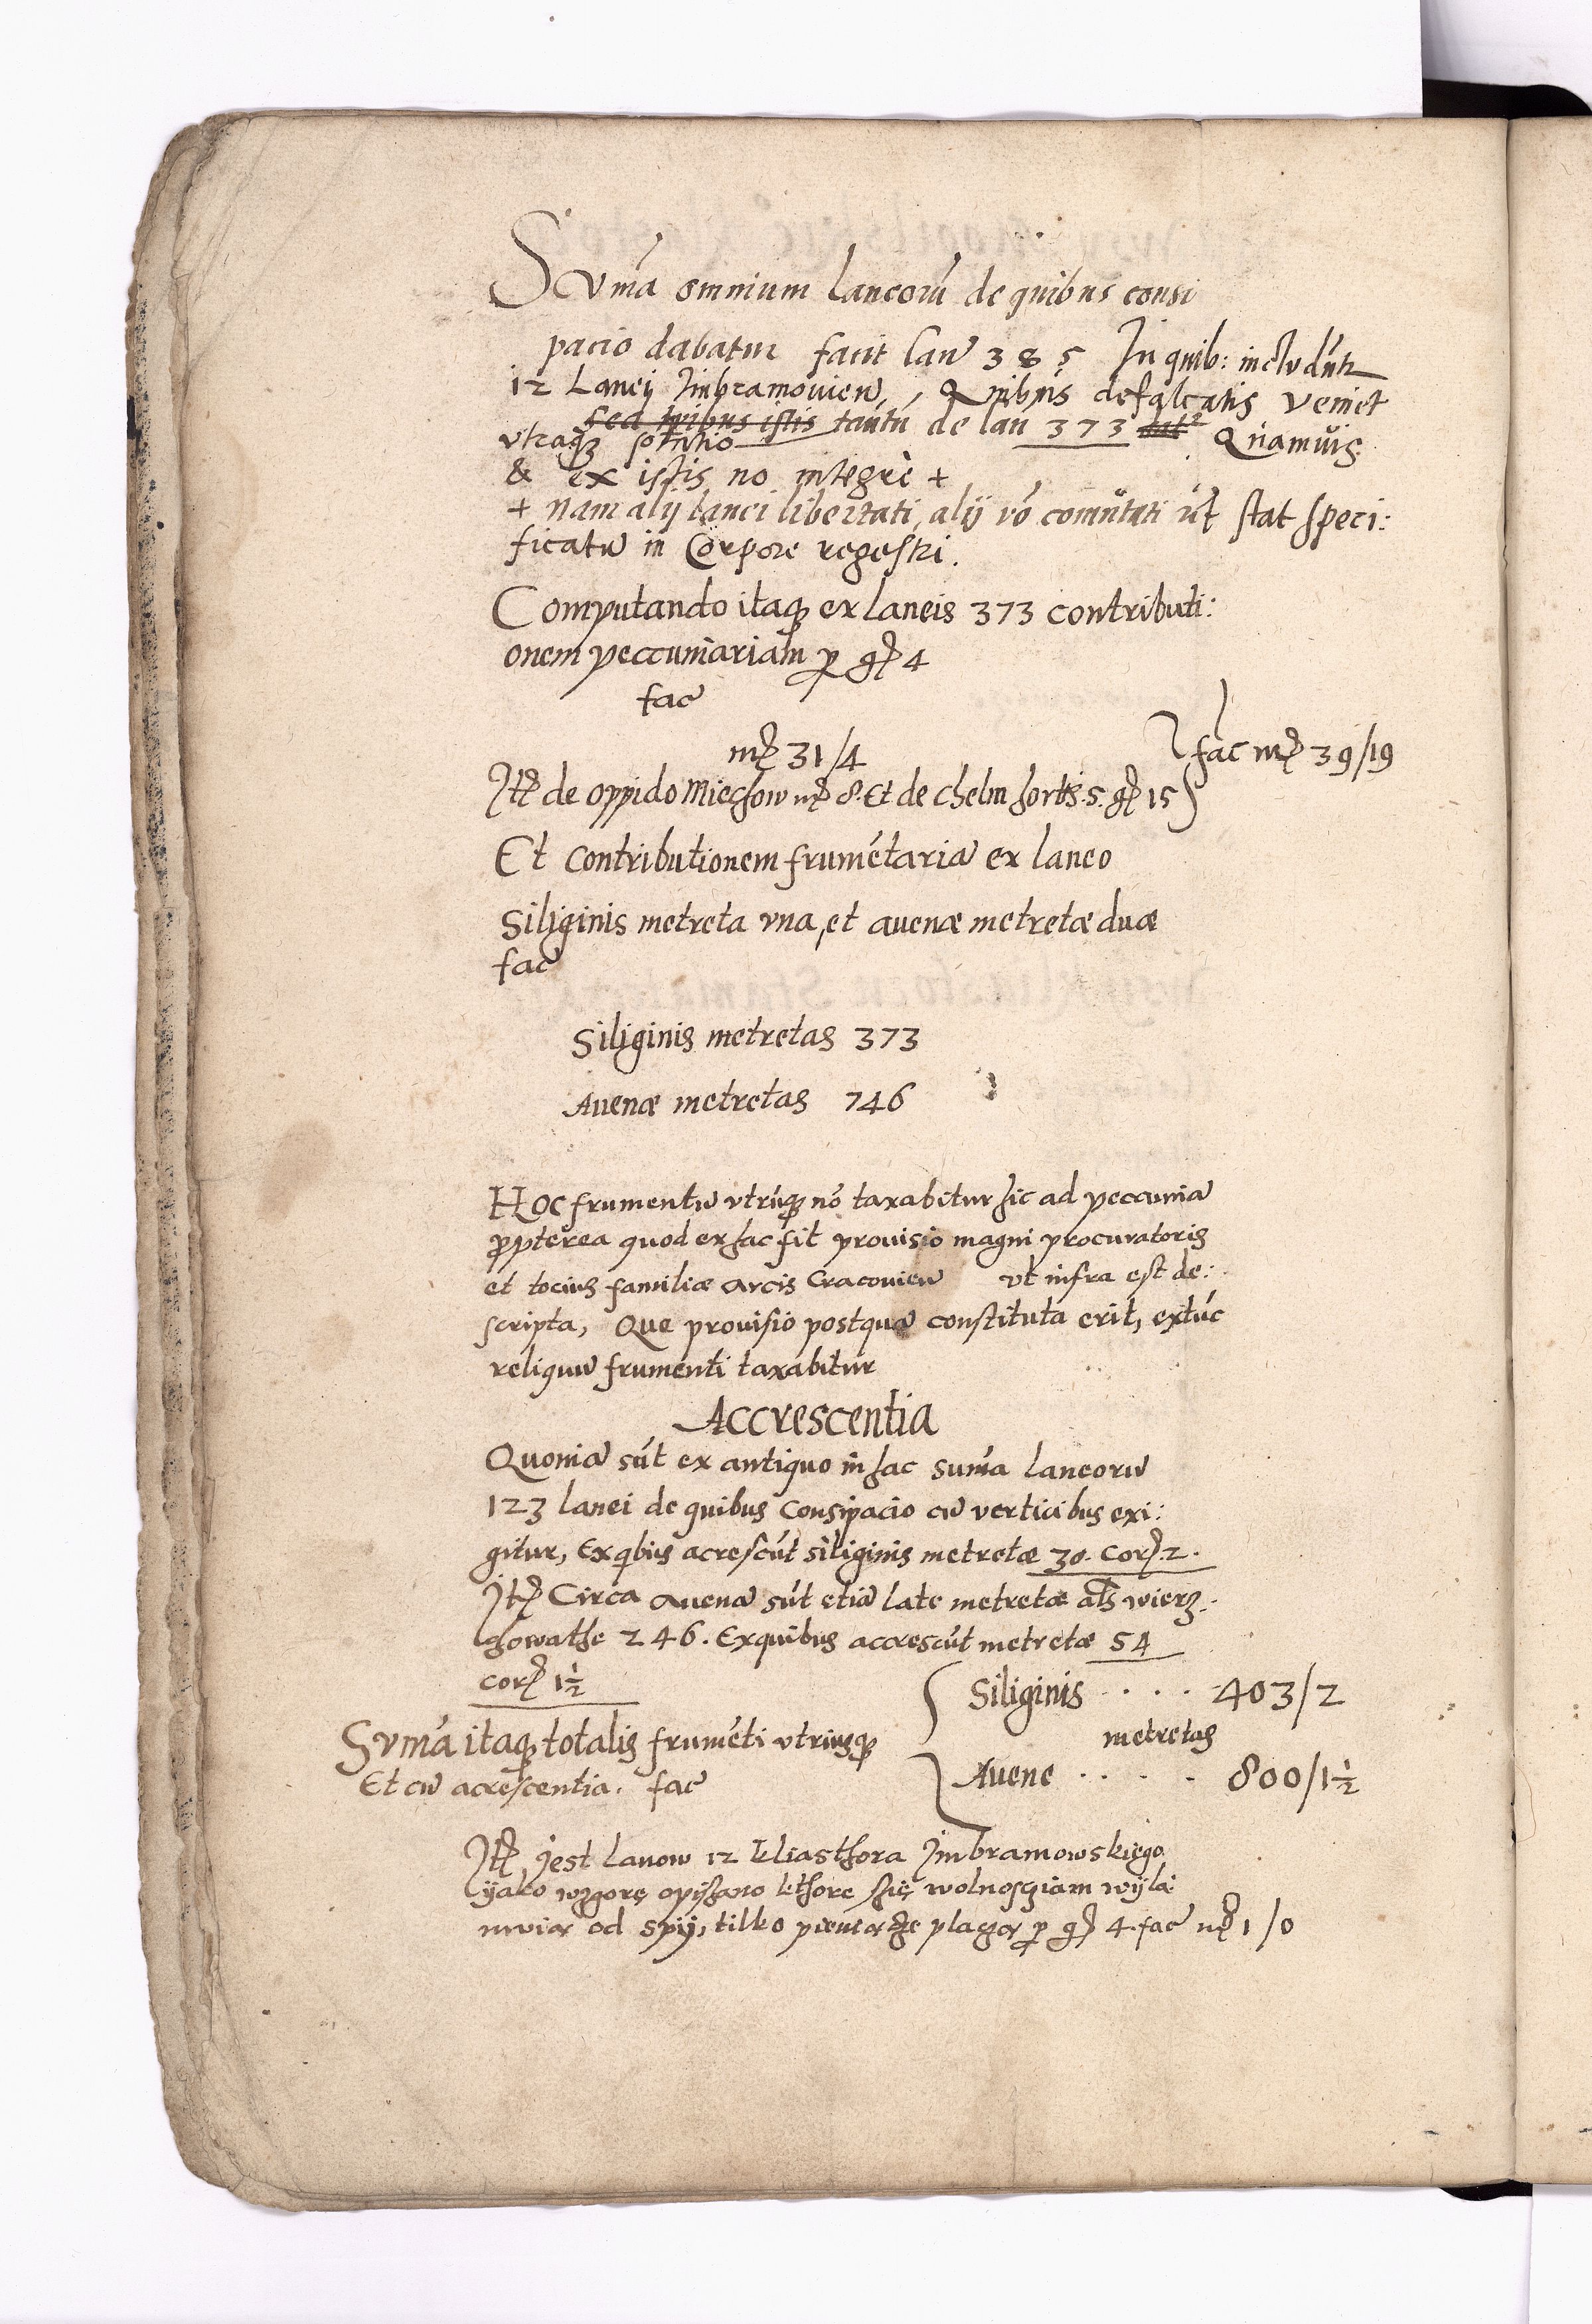 Sum̄a omnium laneorū de quibus consi
pacio dabatur facit lan̄ 385 In quib: includūtr
12 Laneij Jmbramouien̄, Quibus defalcatis veniet
sed quibus istis tantū de lan̄ 373 Quamvis
vtraqȝ solutio
& ex istis nō integrè +
+ nam alij lanei libertati, alij vō comūtati ut stat speci:
ficatū in Corpore regestri.
Computando itaqȝ ex laneis 373 contributi:
onem peccuniariam ꝑ gꝝ 4
fac̄
mꝝ 31/4
fac̄ mꝝ 39/19
Jtꝝ de oppido Miechow mꝝ 8. Et de Chelm hortis. 5. gꝝ 15
Et contributionem frumētariā ex laneo
Siliginis metreta vna, et auenæ metretæ duæ
fac̄
Siliginis metretas 373
Auenæ metretas 746
Hoc frumentū vtrūqȝ nō taxabitur hic ad peccuniā
ꝓpterea quod ex hac fit prouisio magni procuratoris
et tocius familiæ arcis Cracouien̄ vt infra est de:
scripta, Que prouisio postquā constituta erit, extūc
reliquū frumenti taxabitur
Accrescentia
Quoniā sūt ex antiquo in hac sum̄a laneorū
123 lanei de quibus Consipacio cū verticibus exi:
gitur, Ex qbus acrescūt siliginis metretæ 30. corꝝ. 2.
Jtꝝ Circa auenā sūt etiā late metretæ als wierz:
chowathe 246. Ex quibus accrescūt metretæ 54
corꝝ 1½
Siliginis .... 403/2
Sum̄a itaqȝ totalis frumēti vtriusqȝ
metretas
Et cū acrescentia. fac̄
Auene .... 800/1½
Jtꝝ jest lanow 12 kliasthora Jmbramowskiego
yako wzgorę opiszano kthore szię wolnosęziam wyla
muią od spy, tilko ꝑ gꝝ 4. fac̄ mꝝ 1/0